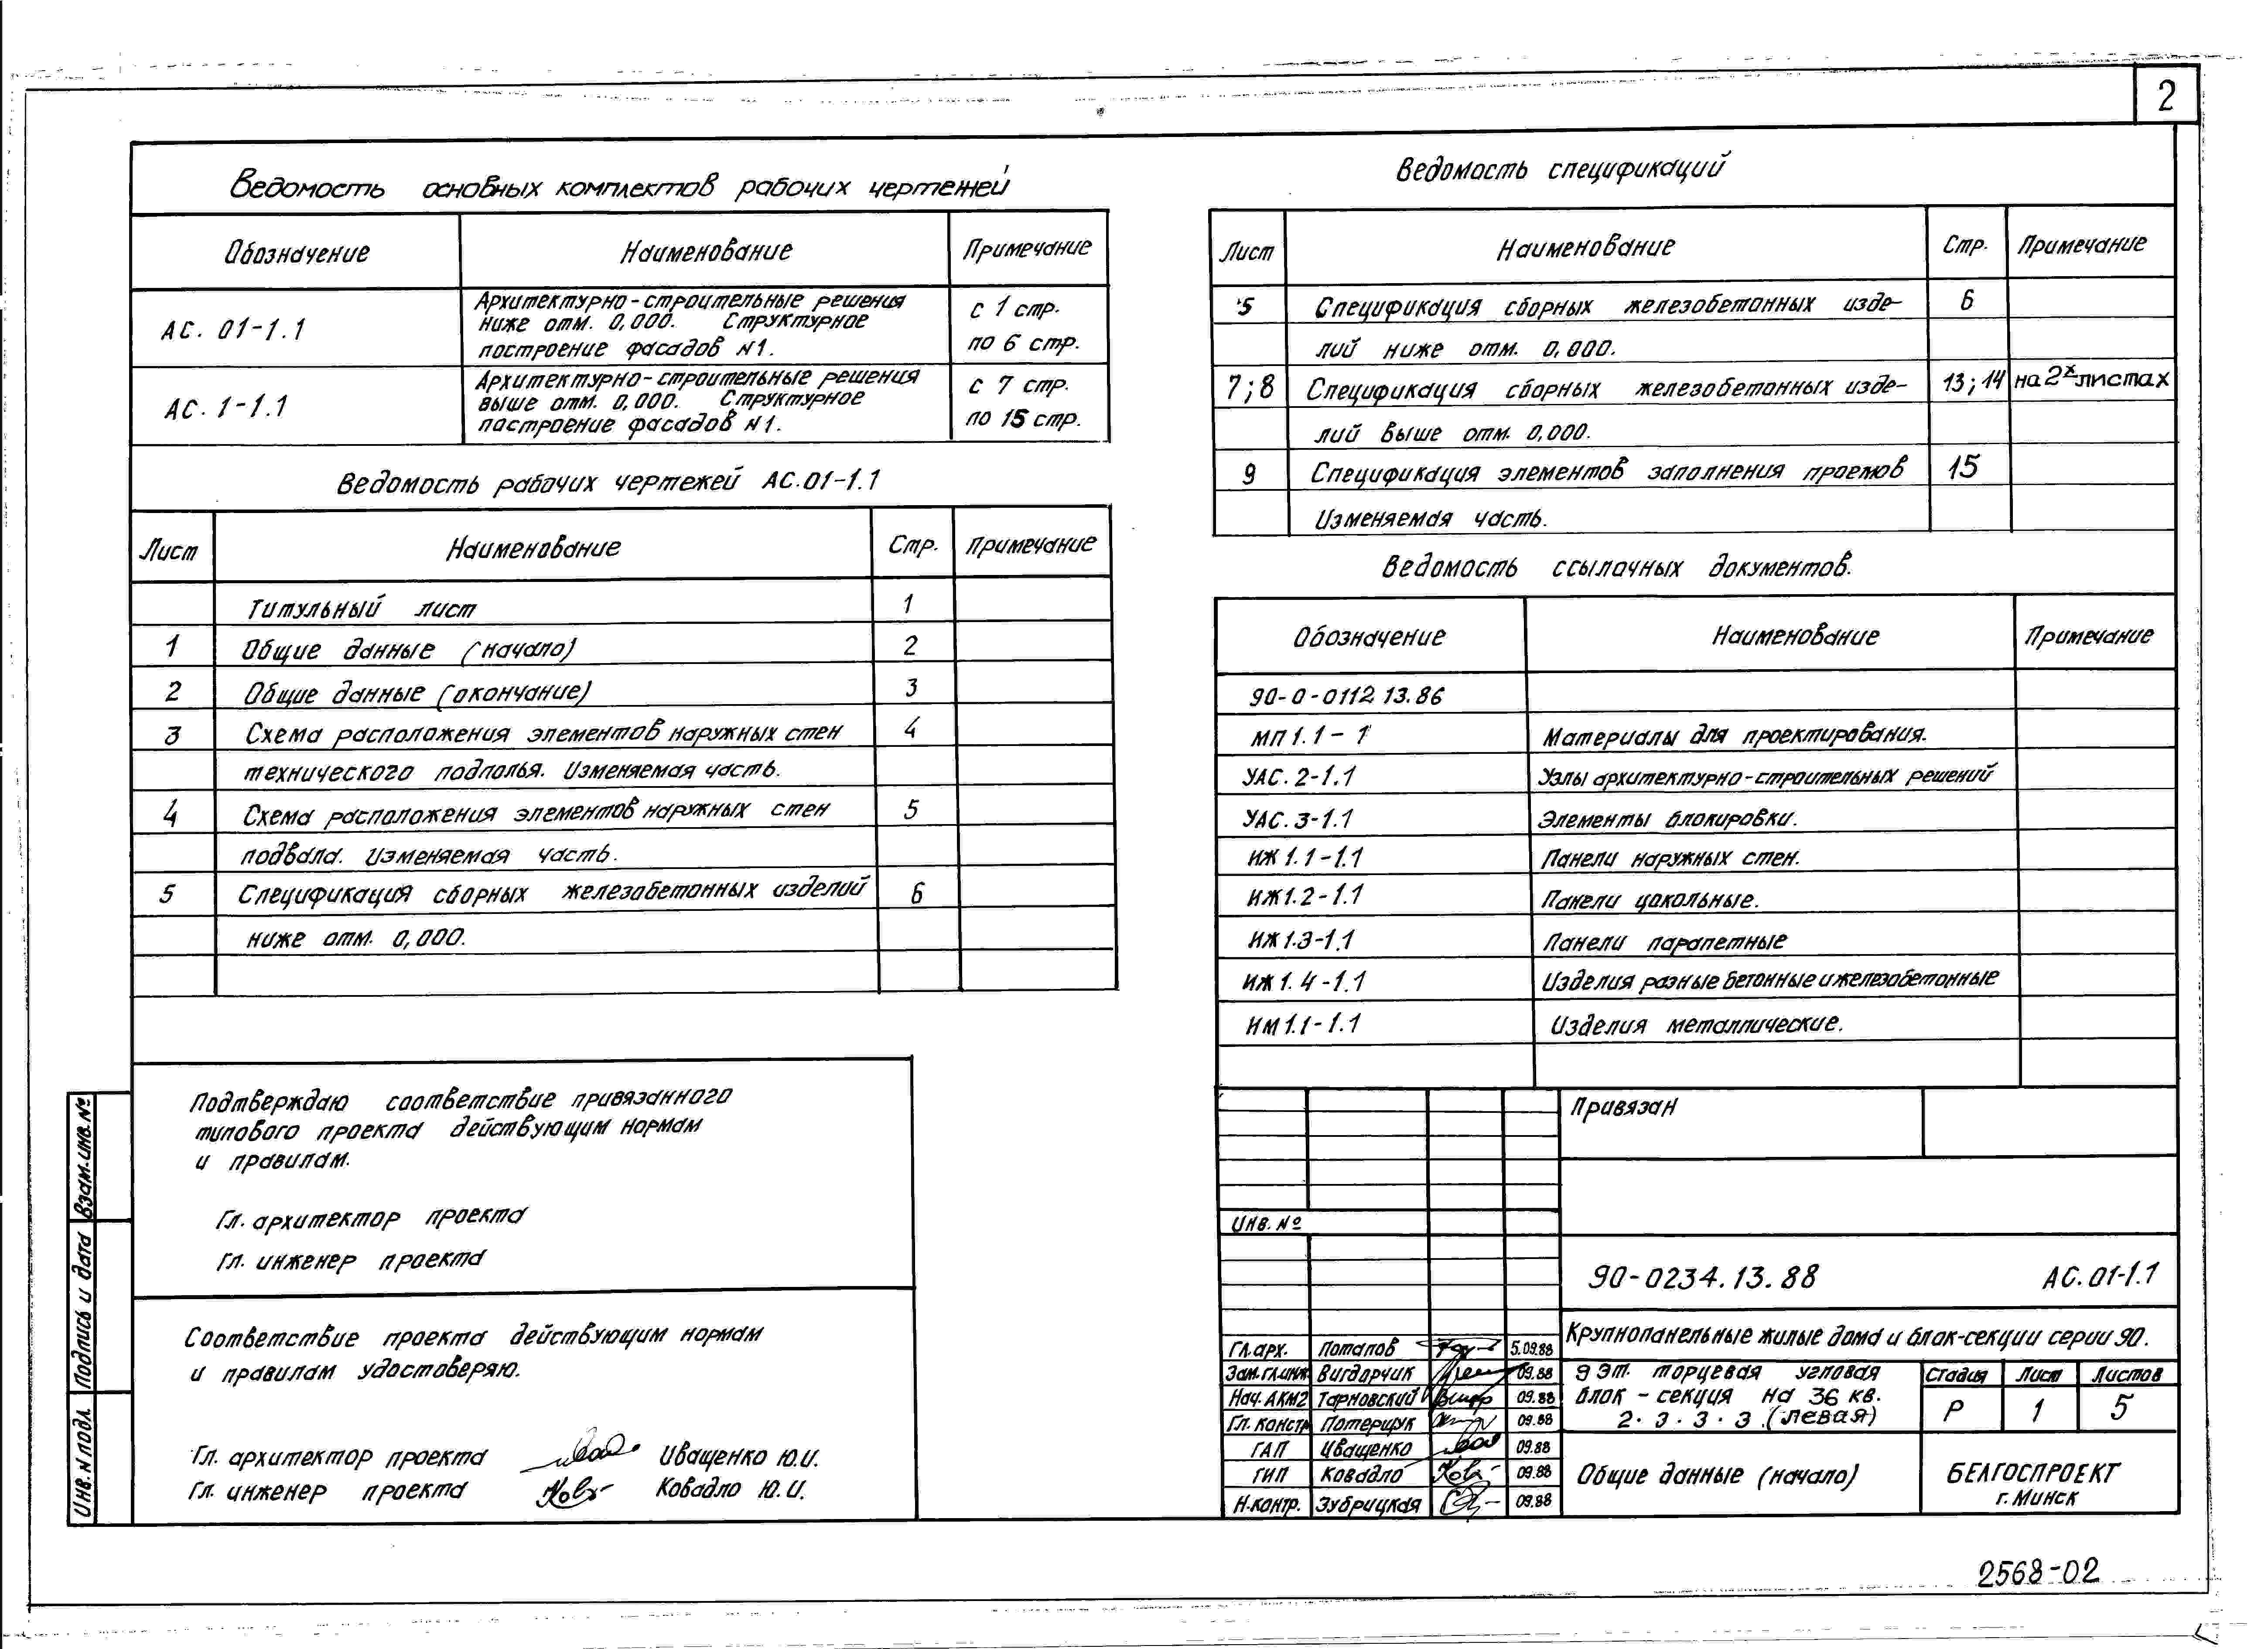 2
Ведомость основных комплектов рабочих чертежей
Обозначение Наименование Примечание
АС. 01-1.1 Архитектурно-строительные решения ниже отм. 0,000. Структурное построение фасадов N1. с 1 стр. по 6 стр.
АС. 1-1.1 Архитектурно-строительные решения выше отм. 0,000. Структурное построение фасадов N1. с 7 стр. по 15 стр.
Ведомость рабочих чертежей АС.01-1.1
Лист Наименование Стр. Примечание
Титульный лист 1
1 Общие данные (начало) 2
2 Общие данные (окончание) 3
3 Схема расположения элементов наружных стен 4
технического подполья. Изменяемая часть.
4 Схема расположения элементов наружных стен 5
подвала. Изменяемая часть.
5 Спецификация сборных железобетонных изделий 6
ниже отм. 0,000.
Подтверждаю соответствие привязанного
типового проекта действующим нормам
и правилам.
Гл. архитектор проекта
Гл. инженер проекта
Соответствие проекта действующим нормам
и правилам удостоверяю.
Гл. архитектор проекта Иващенко Ю.И.
Гл. инженер проекта Ковадло Ю.И.
Взам.инв.№
Подпись и дата
Инв.N подл.
Ведомость спецификаций
Лист Наименование Стр. Примечание
5 Спецификация сборных железобетонных изде- 6
лий ниже отм. 0,000.
7;8 Спецификация сборных железобетонных изде- 13;14 на 2х листах
лий выше отм. 0,000.
9 Спецификация элементов заполнения проемов 15
Изменяемая часть.
Ведомость ссылочных документов.
Обозначение Наименование Примечание
90-0-0112.13.86
МП 1.1-1 Материалы для проектирования.
УАС. 2-1.1 Узлы архитектурно-строительных решений
УАС. 3-1.1 Элементы блокировки.
ИЖ 1.1-1.1 Панели наружных стен.
ИЖ 1.2-1.1 Панели цокольные.
ИЖ 1.3-1.1 Панели парапетные
ИЖ 1.4-1.1 Изделия разные бетонные и железобетонные
ИМ 1.1-1.1 Изделия металлические.
Привязан
Инв. №
90-0234.13.88 АС.01-1.1
Крупнопанельные жилые дома и блок-секции серии 90.
Гл.арх. Потапов 5.09.88
Зам.гл.инж. Вигдорчик 09.88
Нач.АКМ2 Тарновский 09.88
Гл. констр Потерщук 09.88
ГАП Иващенко 09.88
ГИП Ковадло 09.88
Н.контр. Зубрицкая 09.88
9 эт. торцевая угловая
блок - секция на 36 кв.
2.3.3.3.(левая)
Стадия Лист Листов
Р 1 5
Общие данные (начало)
БЕЛГОСПРОЕКТ
г. Минск
2568-02